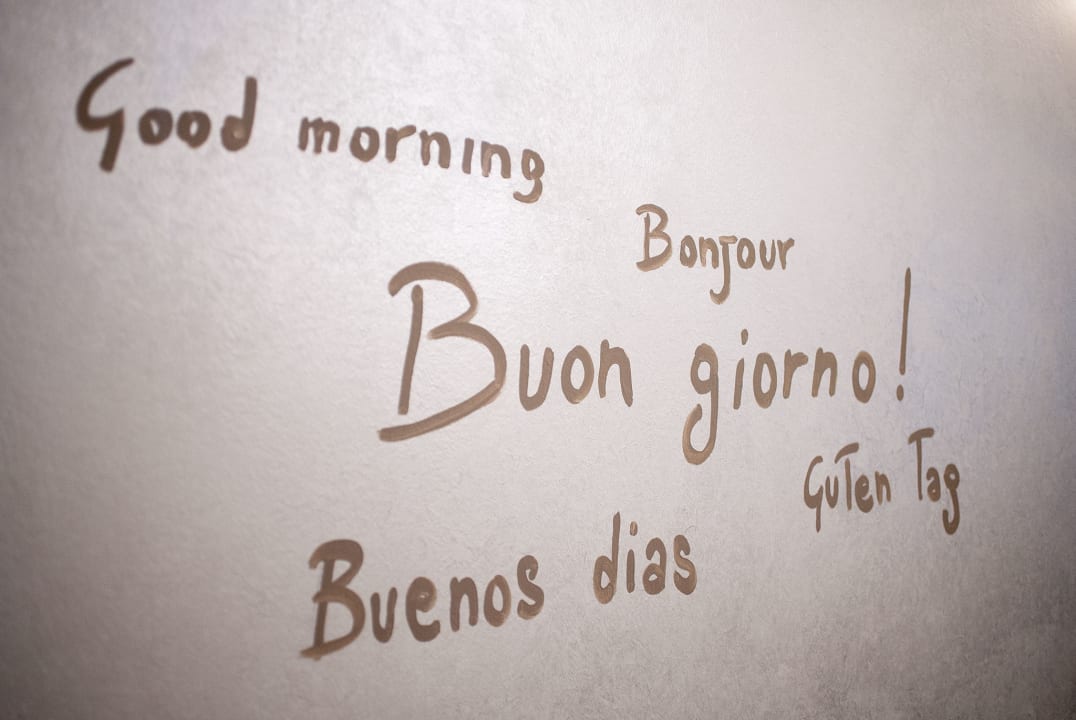 Good morning
Bonjour
Buon giorno!
Guten Tag
Buenos dias